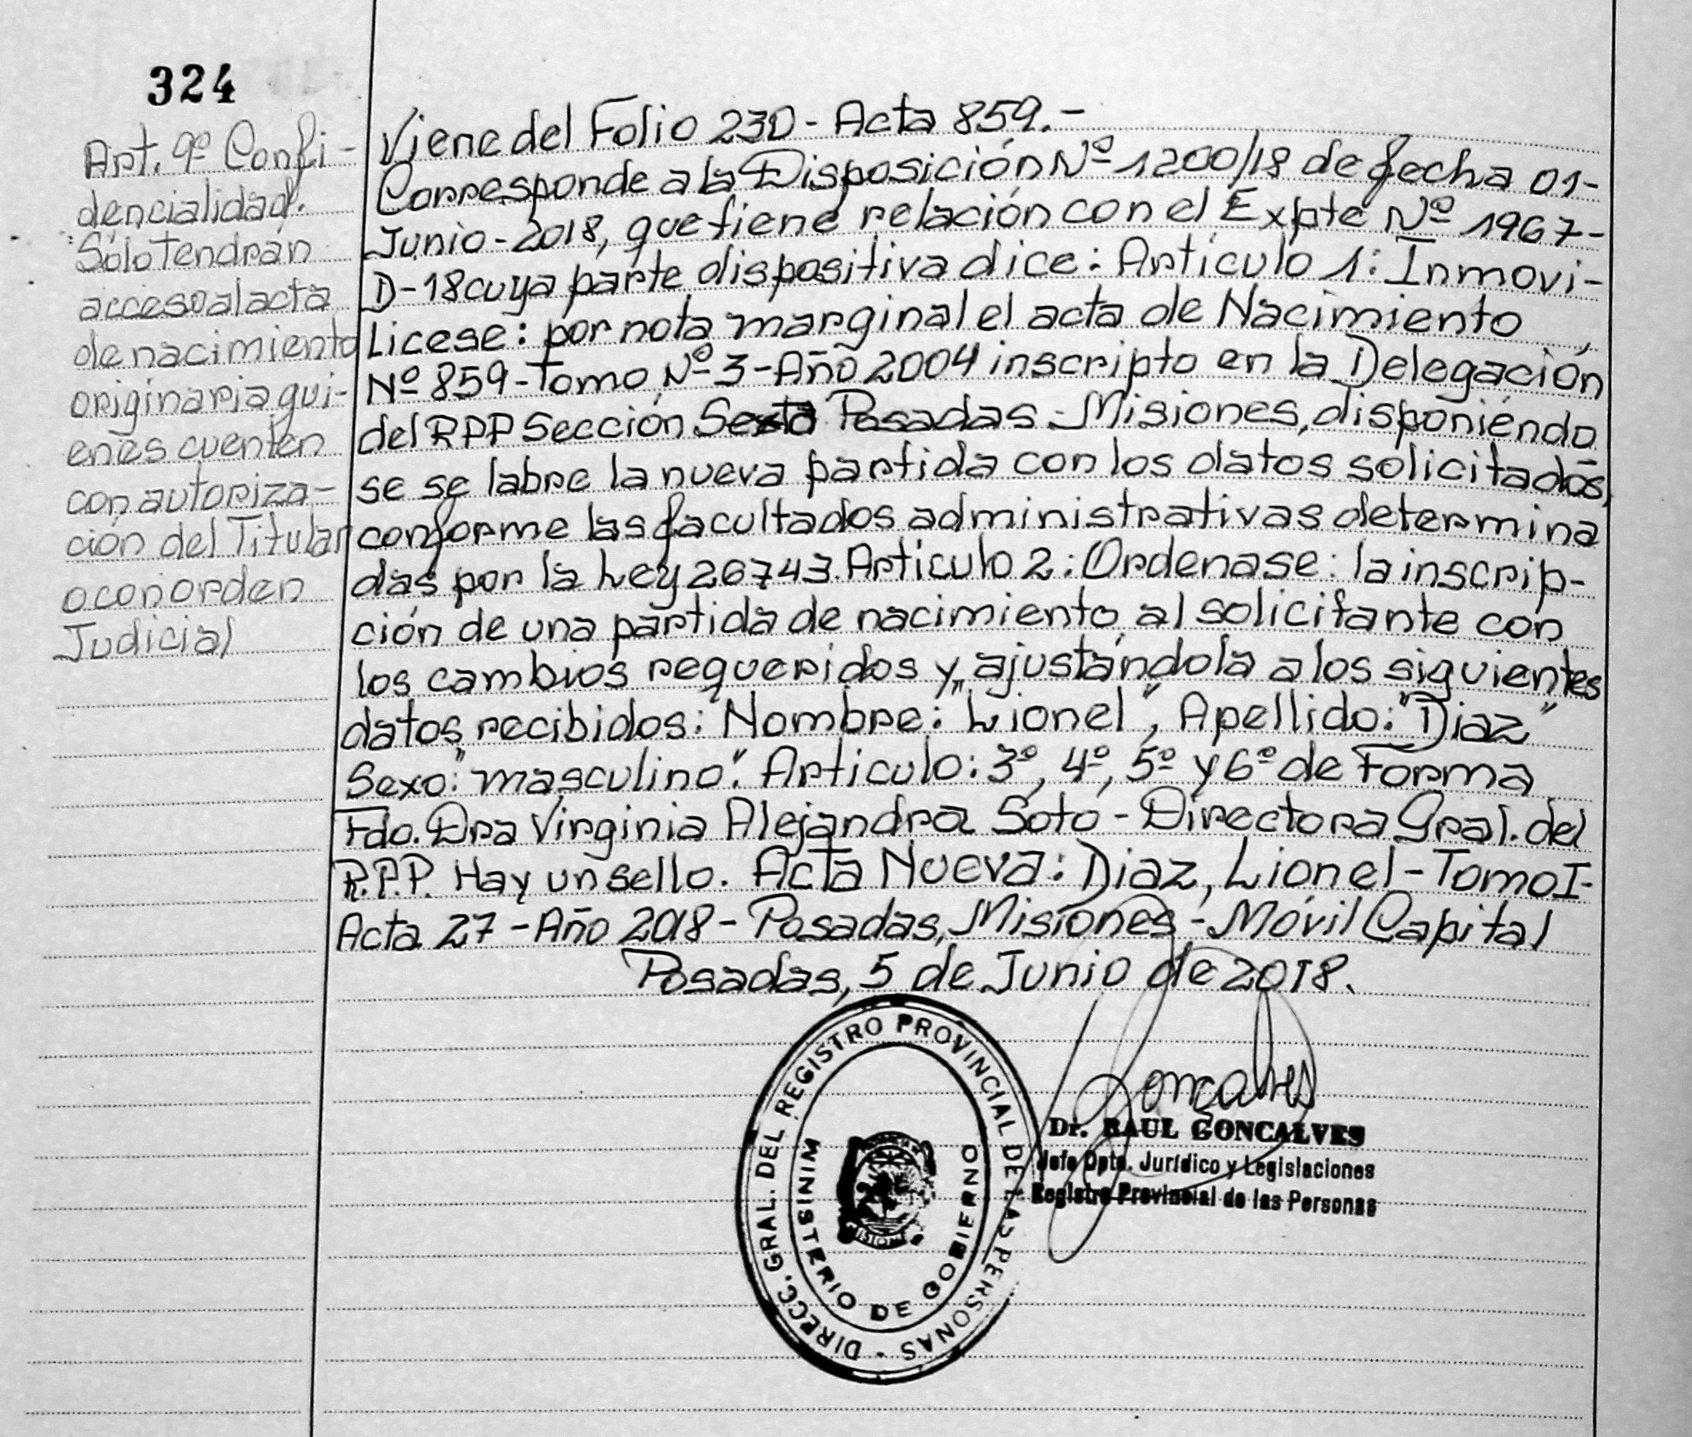 324
Art. 9º Confi-
dencialidad.
Sólo Tendrán
acceso al acta
de nacimiento
originaria qui-
enes cuenten
con autoriza-
ción del Titular
o con orden
Judicial
Viene del Folio 230 - Acta 859.-
Corresponde a la Disposición Nº 1200/18 de fecha 01-
Junio-2018, que tiene relación con el Expte Nº 1967-
D-18 cuya parte dispositiva dice: Artículo 1: Inmovi-
Licese: por nota marginal el acta de Nacimiento
Nº 859-Tomo Nº 3-Año 2004 inscripto en la Delegación
del RPP Sección Sexta Posadas - Misiones, disponiéndo
se se labre la nueva partida con los datos solicitados,
conforme las facultados administrativas determina
das por la Ley 26743. Artículo 2: Ordenase: la inscrip-
ción de una partida de nacimiento al solicitante con
los cambios requeridos y ajustándola a los siguientes
datos recibidos: Nombre: "Lionel", Apellido: "Diaz"
Sexo: "masculino". Articulo: 3º, 4º, 5º y 6º de Forma
Fdo. Dra Virginia Alejandra Soto - Directora Gral. del
R.P.P. Hay un sello. Acta Nueva: Diaz, Lionel - Tomo I-
Acta 27 - Año 2018 - Posadas, Misiones - Móvil Capital
Posadas, 5 de Junio de 2018.
DIRECC. GRAL. DEL REGISTRO PROVINCIAL DE LAS PERSONAS -
MINISTERIO DE GOBIERNO
Goncalves
Dr. RAUL GONCALVES
Jefe Dpto. Jurídico y Legislaciones
Registro Provincial de las Personas